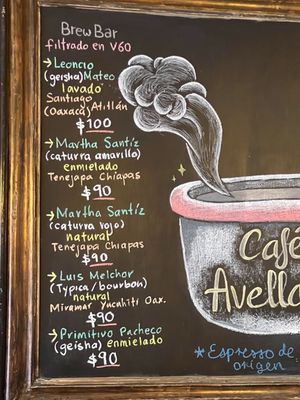 Brew Bar
filtrado en V60
→ Leoncio
(geisha) Mateo
lavado
Santiago
(Oaxaca) Atitlán
$100
→ Martha Santíz
(caturra amarillo)
enmielado
Tenejapa Chiapas
$90
→ Martha Santíz
(caturra rojo)
natural
Tenejapa Chiapas
$90
→ Luis Melchor
(Typica/bourbon)
natural
Miramar Yucuhiti Oax.
$90
→ Primitivo Pacheco
(geisha) enmielado
$90
Café
Avella
*Espresso de
origen